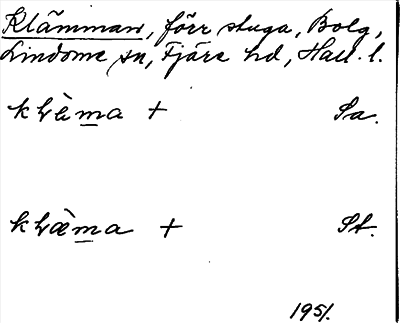 Klämman, förr stuga, Bolg,
Lindome sn, Fjäre hd, Hall. l.
klæ̀ma + Sa.
klæ̀ma + St.
1951.